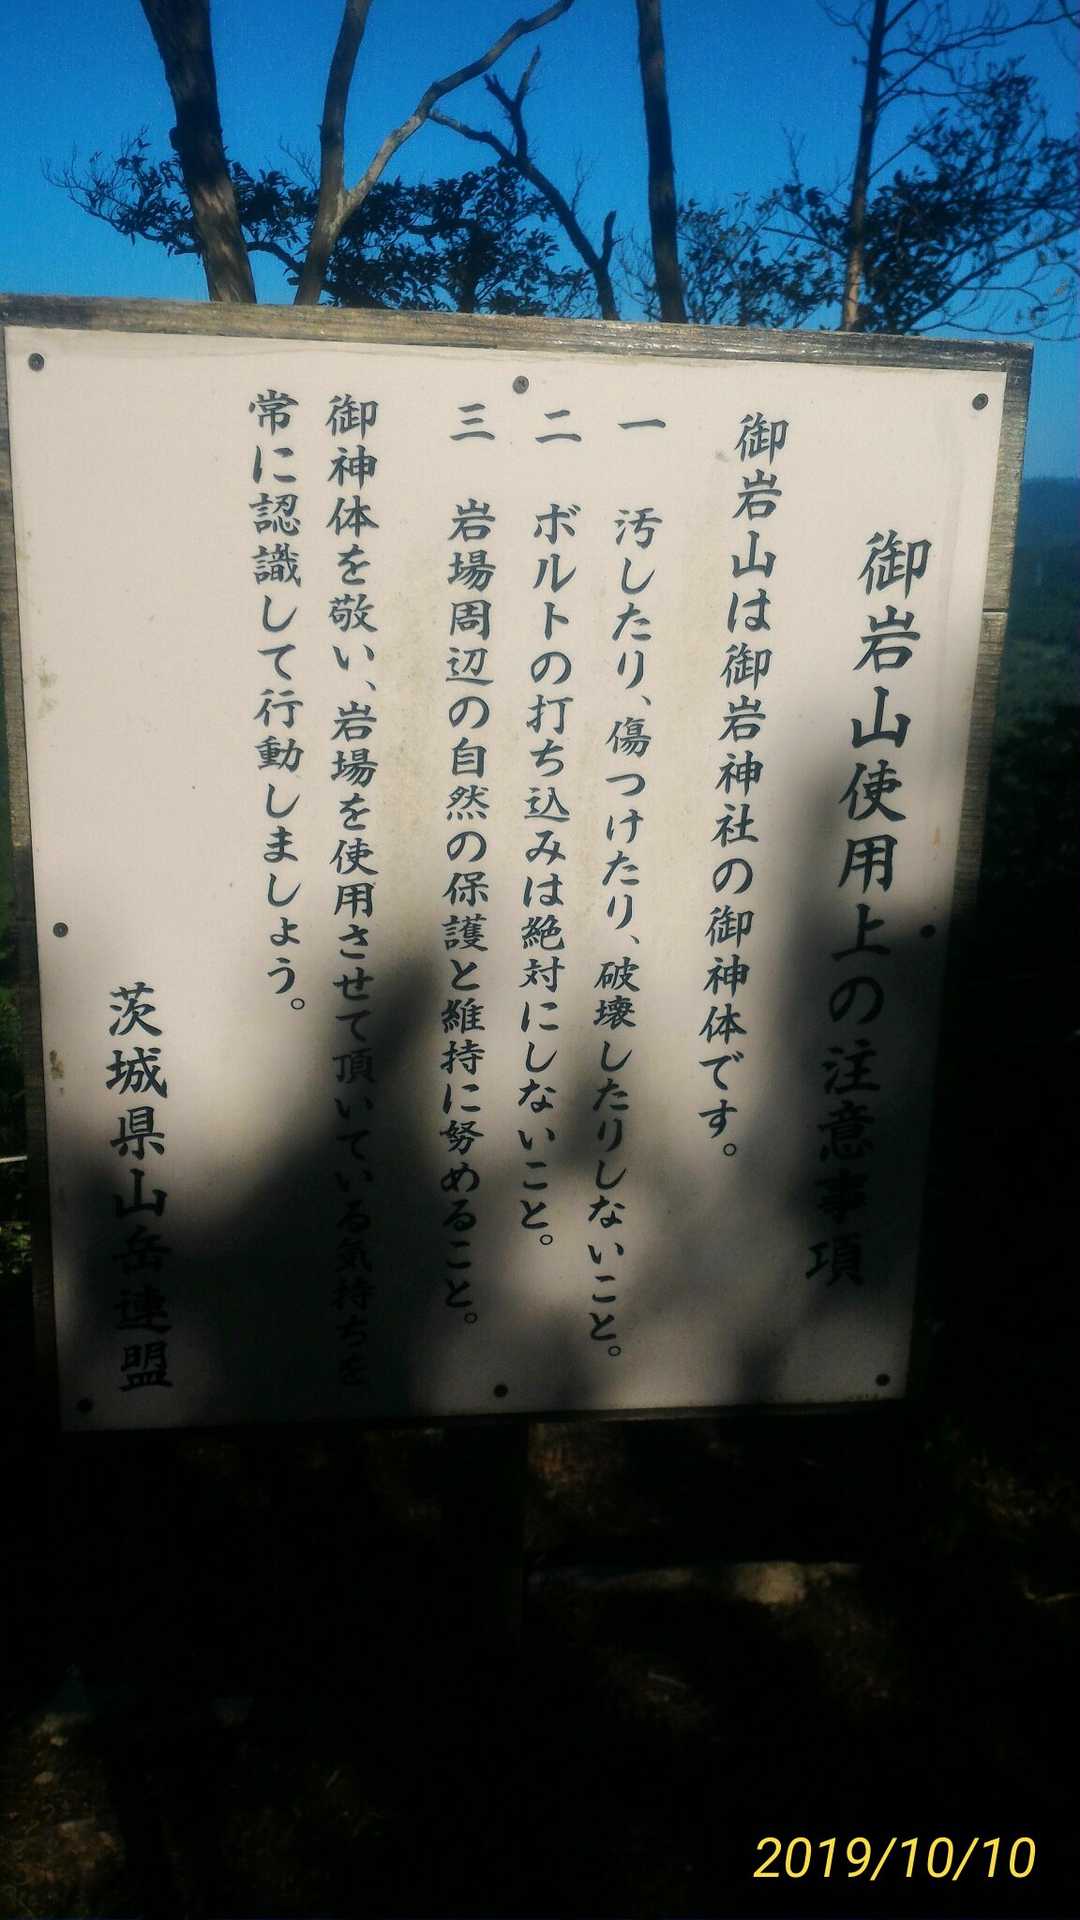 御岩山使用上の注意事項
御岩山は御岩神社の御神体です。
一　汚したり、傷つけたり、破壊したりしないこと。
二　ボルトの打ち込みは絶対にしないこと。
三　岩場周辺の自然の保護と維持に努めること。
御神体を敬い、岩場を使用させて頂いている気持ちを
常に認識して行動しましょう。
茨城県山岳連盟
2019/10/10